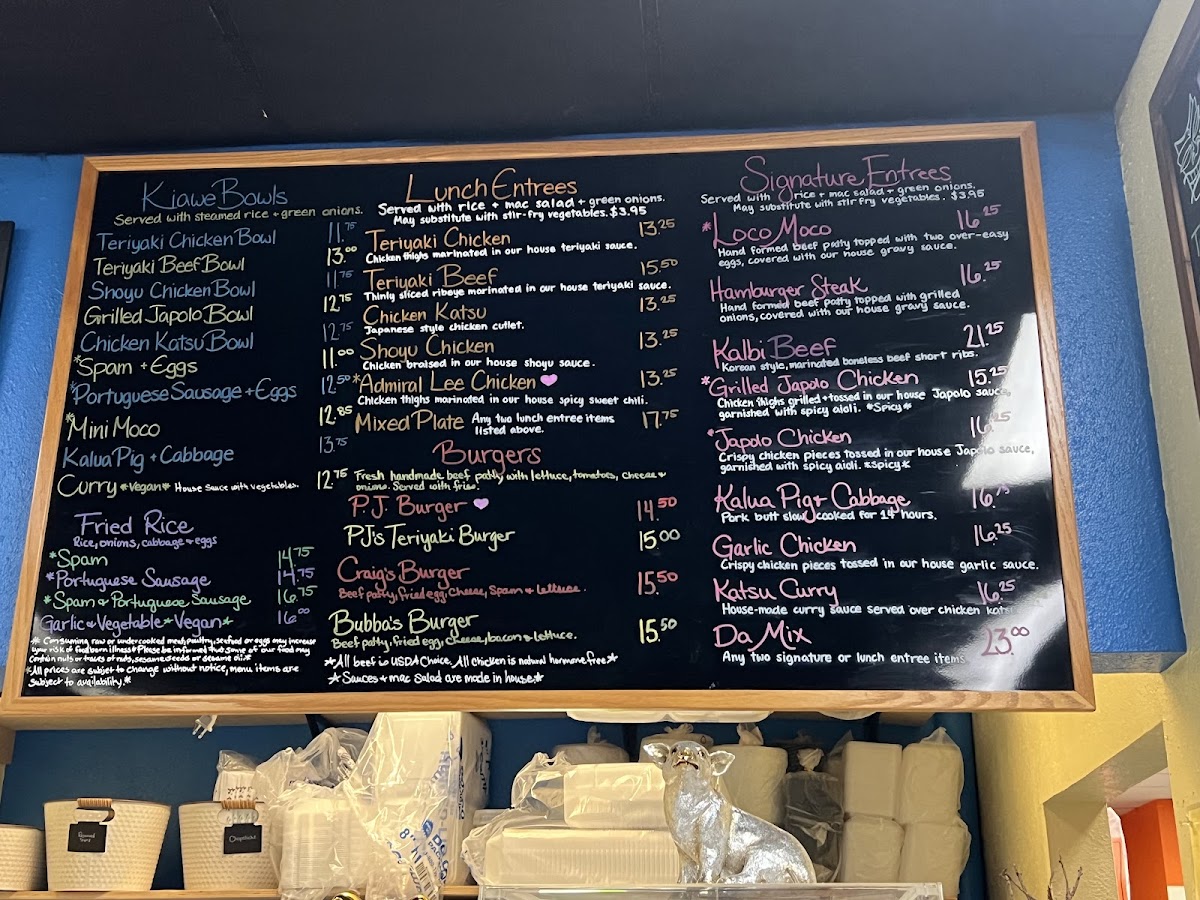 Kiawe Bowls
Served with steamed rice + green onions.
Teriyaki Chicken Bowl 11.75
Teriyaki Beef Bowl 13.00
Shoyu Chicken Bowl 11.75
Grilled Japolo Bowl 12.75
Chicken Katsu Bowl 12.75
*Spam + Eggs 11.00
*Portuguese Sausage + Eggs 12.50
*Mini Moco 12.85
Kalua Pig + Cabbage 13.75
Curry *Vegan* House Sauce with vegetables. 12.75
Fried Rice
Rice, onions, cabbage + eggs
*Spam 14.75
*Portuguese Sausage 14.75
*Spam + Portuguese Sausage 16.75
Garlic + Vegetable *Vegan* 16.00
* Consuming raw or undercooked meat, poultry, seafood or eggs may increase
your risk of foodborn illness * Please be informed that some of our food may
contain nuts or traces of nuts, sesame seeds or sesame oil.*
*All prices are subject to change without notice, menu items are
subject to availability.*
Lunch Entrees
Served with rice + mac salad + green onions.
May substitute with stir-fry vegetables. $3.95
Teriyaki Chicken 13.25
Chicken thighs marinated in our house teriyaki sauce.
Teriyaki Beef 15.50
Thinly sliced ribeye marinated in our house teriyaki sauce.
Chicken Katsu 13.25
Japanese style chicken cutlet.
Shoyu Chicken 13.25
Chicken braised in our house shoyu sauce.
*Admiral Lee Chicken 13.25
Chicken thighs marinated in our house spicy sweet chili.
Mixed Plate Any two lunch entree items 17.75
listed above.
Burgers
Fresh handmade beef patty with lettuce, tomatoes, cheese +
onions. Served with fries.
P.J. Burger 14.50
PJ's Teriyaki Burger 15.00
Craig's Burger 15.50
Beef patty, fried egg, cheese, Spam + lettuce.
Bubba's Burger 15.50
Beef patty, fried egg, cheese, bacon + lettuce.
*All beef is USDA Choice. All chicken is natural hormone free*
*Sauces + mac salad are made in house*
Signature Entrees
Served with rice + mac salad + green onions.
May substitute with stir-fry vegetables. $3.95
*Loco Moco 16.25
Hand formed beef patty topped with two over-easy
eggs, covered with our house gravy sauce.
Hamburger Steak 16.25
Hand formed beef patty topped with grilled
onions, covered with our house gravy sauce.
Kalbi Beef 21.25
Korean style, marinated boneless beef short ribs.
*Grilled Japolo Chicken 15.25
Chicken thighs grilled + tossed in our house Japolo sauce,
garnished with spicy aioli. *Spicy*
*Japolo Chicken
Crispy chicken pieces tossed in our house Japolo sauce,
garnished with spicy aioli. *spicy*
Kalua Pig + Cabbage
Pork butt slow cooked for 14 hours.
Garlic Chicken 16.25
Crispy chicken pieces tossed in our house garlic sauce.
Katsu Curry 16.25
House-made curry sauce served over chicken katsu
Da Mix 23.00
Any two signature or lunch entree items
Chopsticks